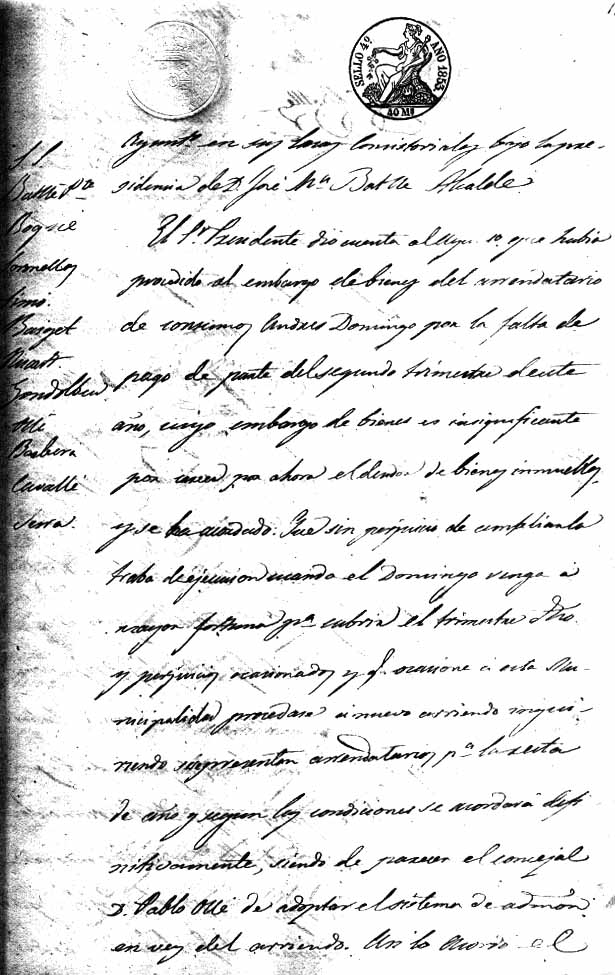 SELLO 4º AÑO 1853.
40 Ms
Ayuntº en sus Casas Consistoriales bajo la pre-
sidencia de D. José Mª Batlle Alcalde.
S. S.
Batlle Pte
Bogué
Simó.
Barget
Ricart
Gondolbeu
Ollé
Barbera
Cavallé
Serra.
El Sr Presidente dio cuenta al Ayu. to, que habia
procedido al embargo de bienes del arrendatario
de consumos Andres Domingo por la falta de
pago de parte del segundo trimestre de este
año, cuyo embargo de bienes es insignificante
por carecer por ahora el deudor de bienes inmuebles,
y se ha acordado: Que sin perjuicio de ampliar la
traba de ejecucion cuando el Domingo venga á
mayor fortuna pª cubrir el trimestre dho
y perjuicios ocasionados y q. ocasione á esta Mu-
nicipalidad procedase á nuevo arriendo inqui-
riendo si se presentan arrendatarios pª lo resta
de año y segun las condiciones se acordará defi
nitivamente, siendo de parecer el concejal
D. Pablo Ollé de adoptar el sistema de admón.
en vez del arriendo. Asi lo acordó el